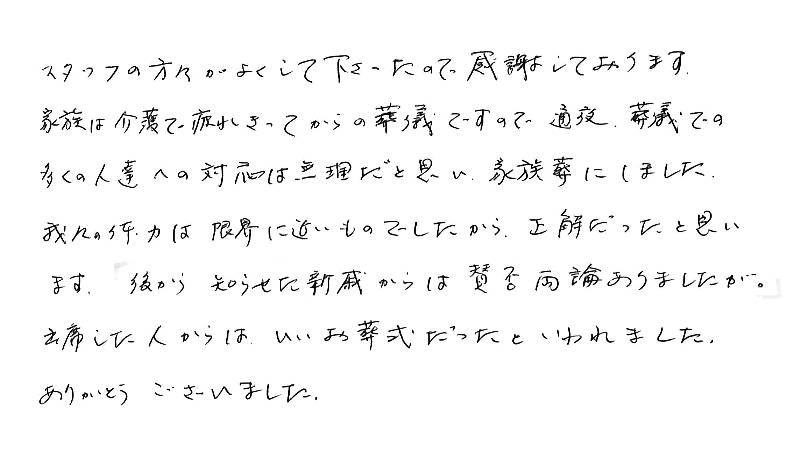 スタッフの方々がよくして下さったので感謝しております。
家族は介護で疲れきってからの葬儀ですので通夜、葬儀での
多くの人達への対応は無理だと思い、家族葬にしました。
我々の体力は限界に近いものでしたから、正解だったと思い
ます。「後から知らせた親戚からは賛否両論ありましたが。」
出席した人からは、いいお葬式だったといわれました。
ありがとうございました。